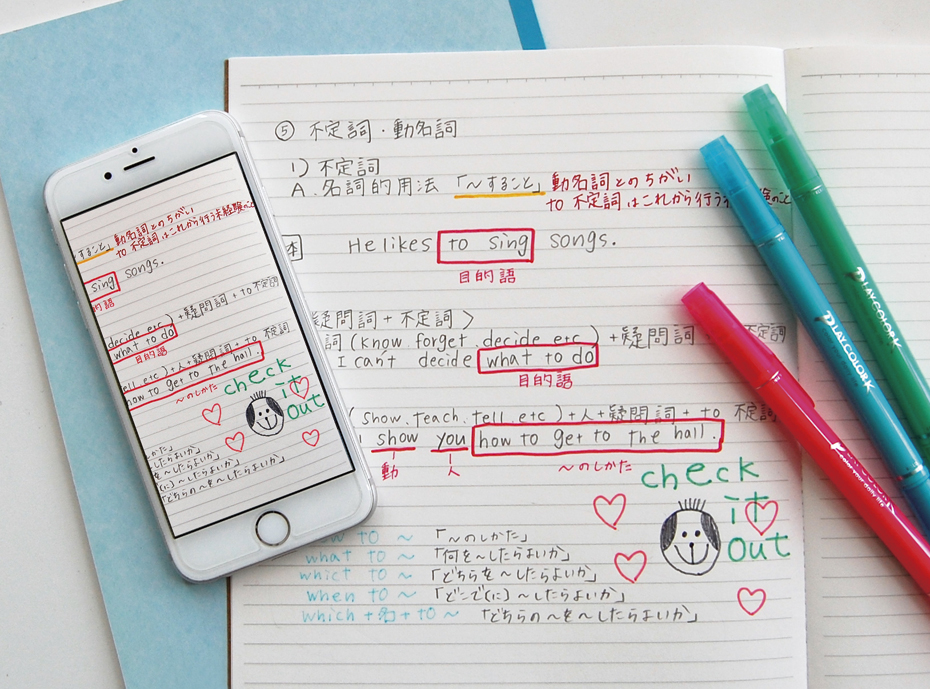 ⑤ 不定詞・動名詞
1) 不定詞
A. 名詞的用法 「〜すること」 動名詞とのちがい
to 不定詞はこれから行う未経験のこと
本 He likes to sing songs.
目的語
疑問詞 + 不定詞 〉
詞 (know.forget.decide etc) + 疑問詞 不定詞
I can't decide what to do
目的語
( show.teach.tell.etc ) + 人 + 疑問詞 + to 不定詞
show you how to get to the hall.
動 人 〜のしかた
check
it
out
how to 〜 「〜のしかた」
what to 〜 「何を〜したらよいか」
whict to 〜 「どちらを〜したらよいか」
when to 〜 「どこで(に)〜したらよいか」
which + 名 + to 〜 「どちらの〜を〜したらよいか」
すること」 動名詞とのちがい
to 不定詞はこれから行う未経験のこと
sing songs.
的語
decide etc) + 疑問詞 + to 不定詞
what to do
目的語
ell.etc) + 人 + 疑問詞 + to 不定詞
how to get to the hall.
〜のしかた
check
it
out
かた」
したらよいか」
を〜したらよいか」
(に)〜したらよいか」
「どちらの〜を〜したらよいか」
PLAYCOLOR K
PLAYCOLOR K
PLAYCOLOR K
Color your daily life